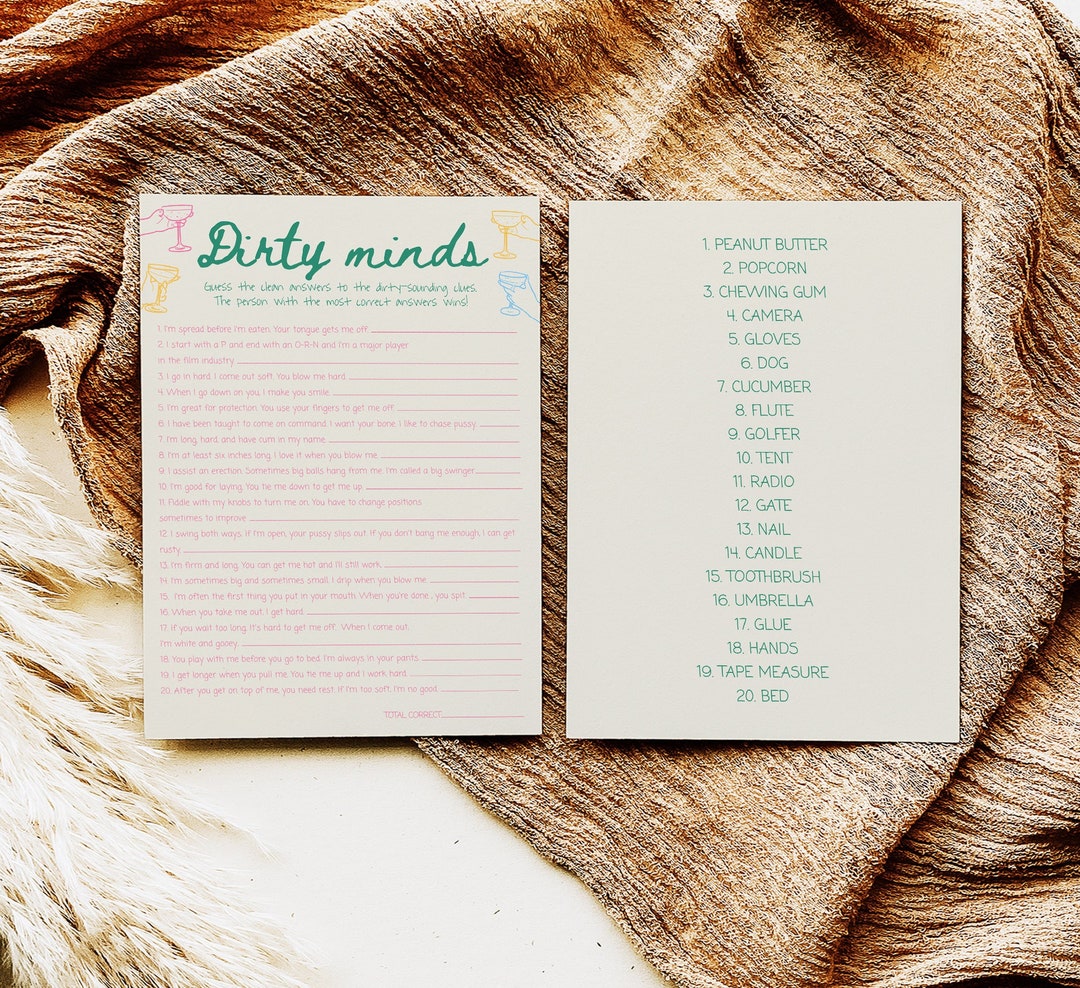 Dirty minds
Guess the clean answers to the dirty-sounding clues.
The person with the most correct answers wins!
1. I'm spread before I'm eaten. Your tongue gets me off.
2. I start with a P and end with an O-R-N and I'm a major player
in the film industry
3. I go in hard. I come out soft. You blow me hard.
4. When I go down on you, I make you smile.
5. I'm great for protection. You use your fingers to get me off.
6. I have been taught to come on command. I want your bone. I like to chase pussy.
7. I'm long, hard, and have cum in my name.
8. I'm at least six inches long. I love it when you blow me.
9. I assist an erection. Sometimes big balls hang from me. I'm called a big swinger.
10. I'm good for laying. You tie me down to get me up.
11. Fiddle with my knobs to turn me on. You have to change positions
sometimes to improve
12. I swing both ways. If I'm open, your pussy slips out. If you don't bang me enough, I can get
rusty.
13. I'm firm and long. You can get me hot and I'll still work.
14. I'm sometimes big and sometimes small. I drip when you blow me.
15. I'm often the first thing you put in your mouth. When you're done , you spit.
16. When you take me out, I get hard.
17. If you wait too long, it's hard to get me off. When I come out,
I'm white and gooey.
18. You play with me before you go to bed. I'm always in your pants.
19. I get longer when you pull me. You tie me up and I work hard.
20. After you get on top of me, you need rest. If I'm too soft, I'm no good.
TOTAL CORRECT:
1. PEANUT BUTTER
2. POPCORN
3. CHEWING GUM
4. CAMERA
5. GLOVES
6. DOG
7. CUCUMBER
8. FLUTE
9. GOLFER
10. TENT
11. RADIO
12. GATE
13. NAIL
14. CANDLE
15. TOOTHBRUSH
16. UMBRELLA
17. GLUE
18. HANDS
19. TAPE MEASURE
20. BED